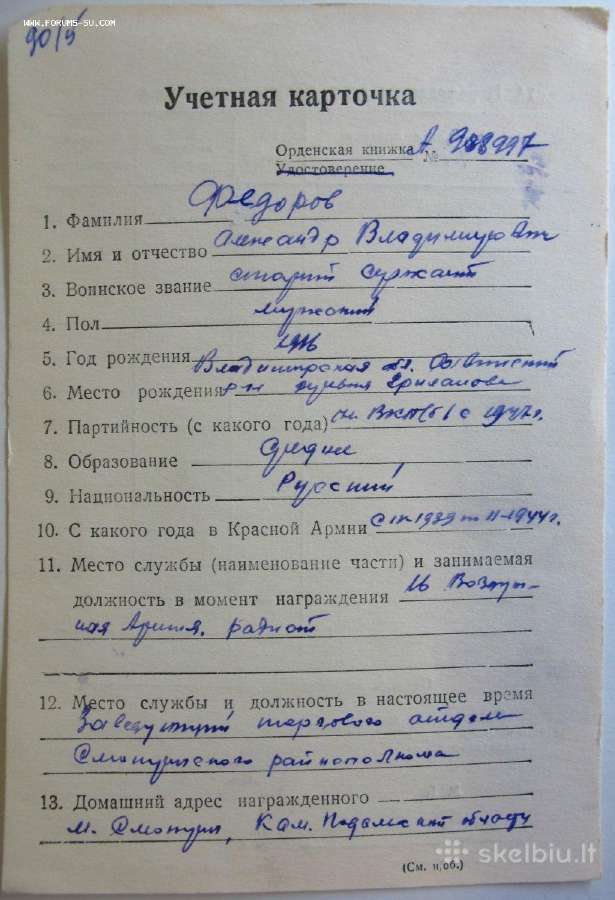 www.forums-su.com
90/5
Учетная карточка
Орденская книжка А № 988997
Удостоверение
1. Фамилия Федоров
2. Имя и отчество Александр Владимирович
3. Воинское звание старший сержант
4. Пол мужской
5. Год рождения 1916
Владимирская обл.
6. Место рождения р-н деревня
7. Партийность (с какого года) чл. ВКП(б) с 1947г.
8. Образование Среднее
9. Национальность Русский
10. С какого года в Красной Армии с IX-1939 по II-1944г.
11. Место службы (наименование части) и занимаемая
должность в момент награждения 16 Воздуш-
ная Армия, радист
12. Место службы и должность в настоящее время
Заведующий торгового отделом
Смотричского райисполкома
13. Домашний адрес награжденного
м. Смотрич, Кам. Подольский область
(См. н/об.)
skelbiu.lt